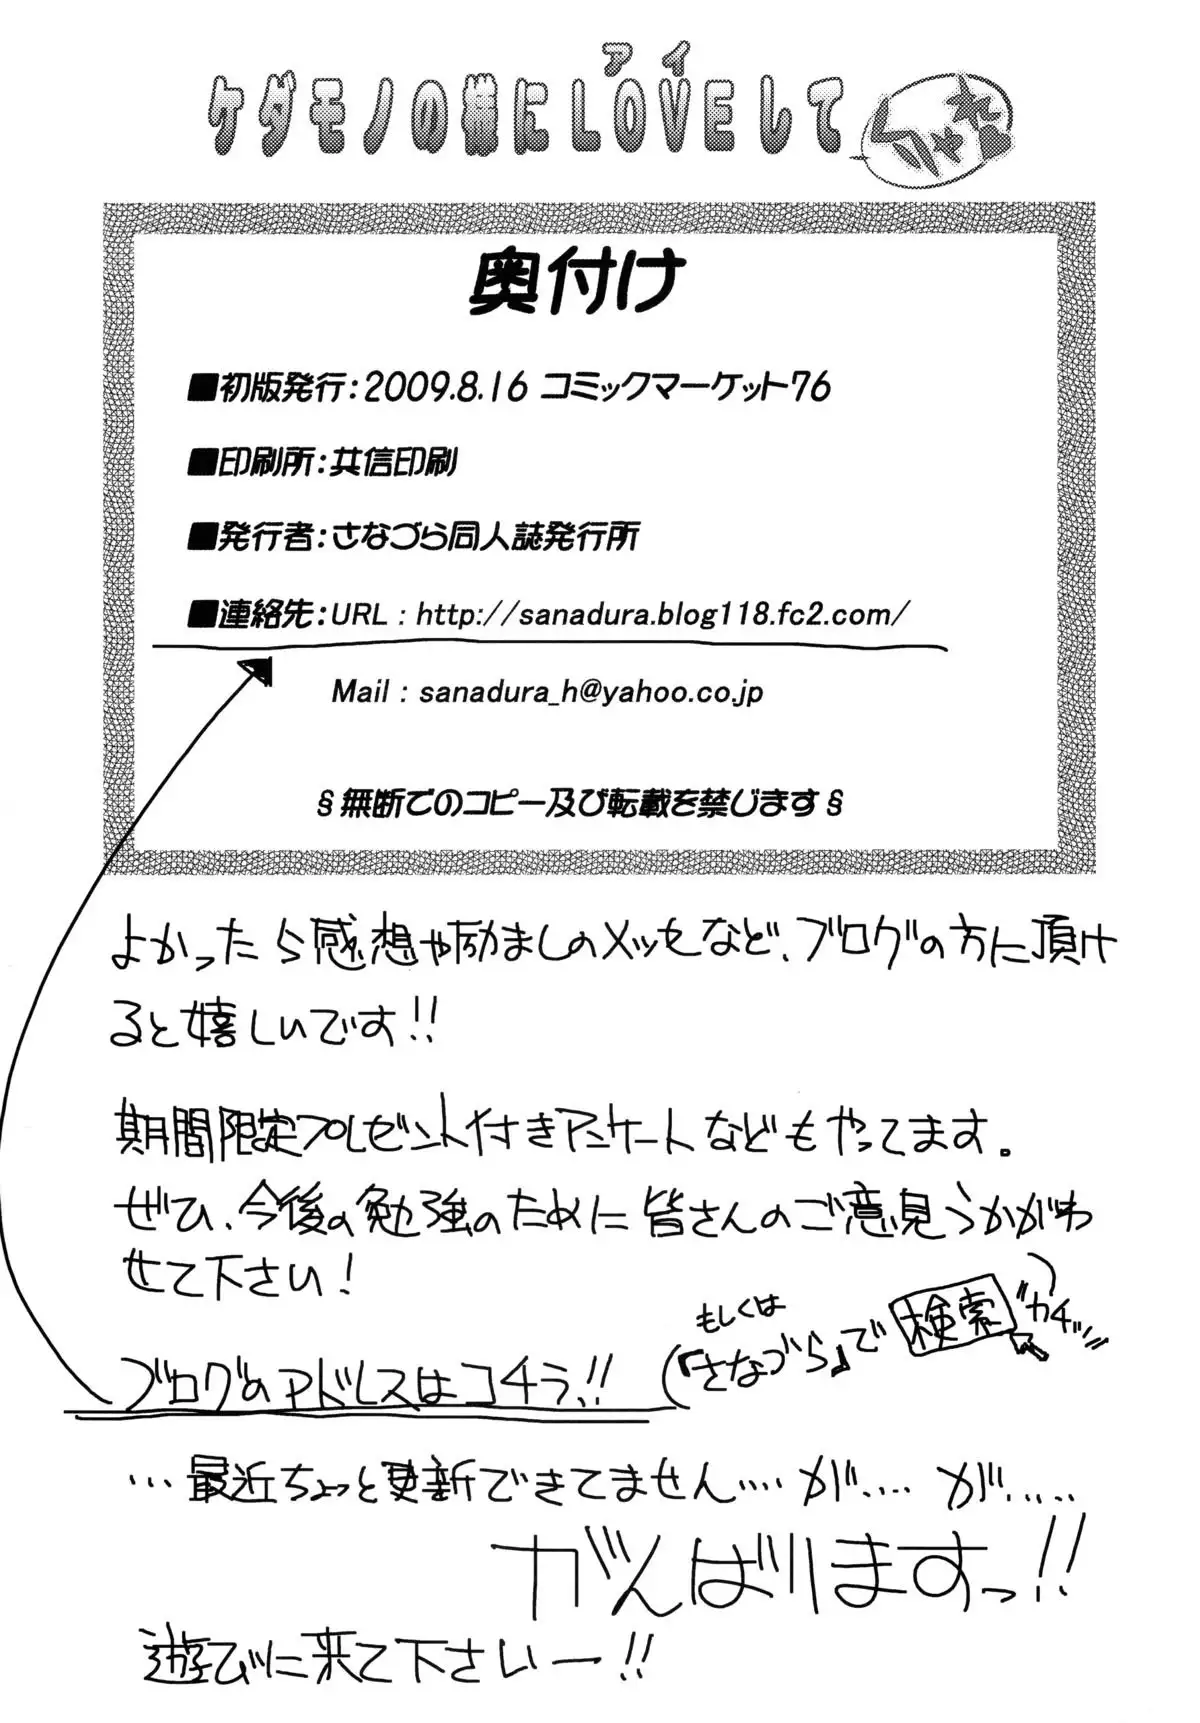 アイ
ケダモノの様にLOVEして
奥付け
■初版発行:2009.8.16 コミックマーケット76
■印刷所:共信印刷
■発行者:さなづら同人誌発行所
■連絡先:URL : http://sanadura.blog118.fc2.com/
Mail : sanadura_h@yahoo.co.jp
§無断でのコピー及び転載を禁じます§
よかったら感想や励ましのメッセなど、ブログの方に頂け
ると嬉しいです!!
期間限定プレゼント付きアンケートなどもやってます。
ぜひ、今後の勉強のために皆さんのご意見うかがわ
せて下さい!
ブログのアドレスはコチラ!!
(もしくは『さなづら』で検索 カチッ)
…最近ちょっと更新できてません…. が…. が…..
がんばりますっ!!
遊びに来て下さいー!!